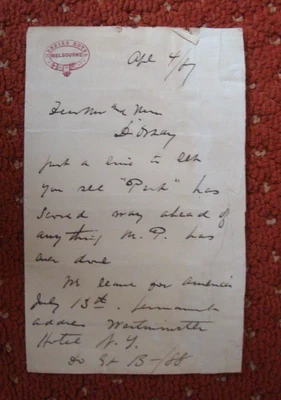 MENZIES HOTEL
MELBOURNE
Apl 4/87
Dear Mr & Mrs
D'Orsay
Just a line to let
you see "Pert" has
scored way ahead of
anything M. P. has
ever done
We leave for America
July 13th. permanent
address Westminster
Hotel N. Y.